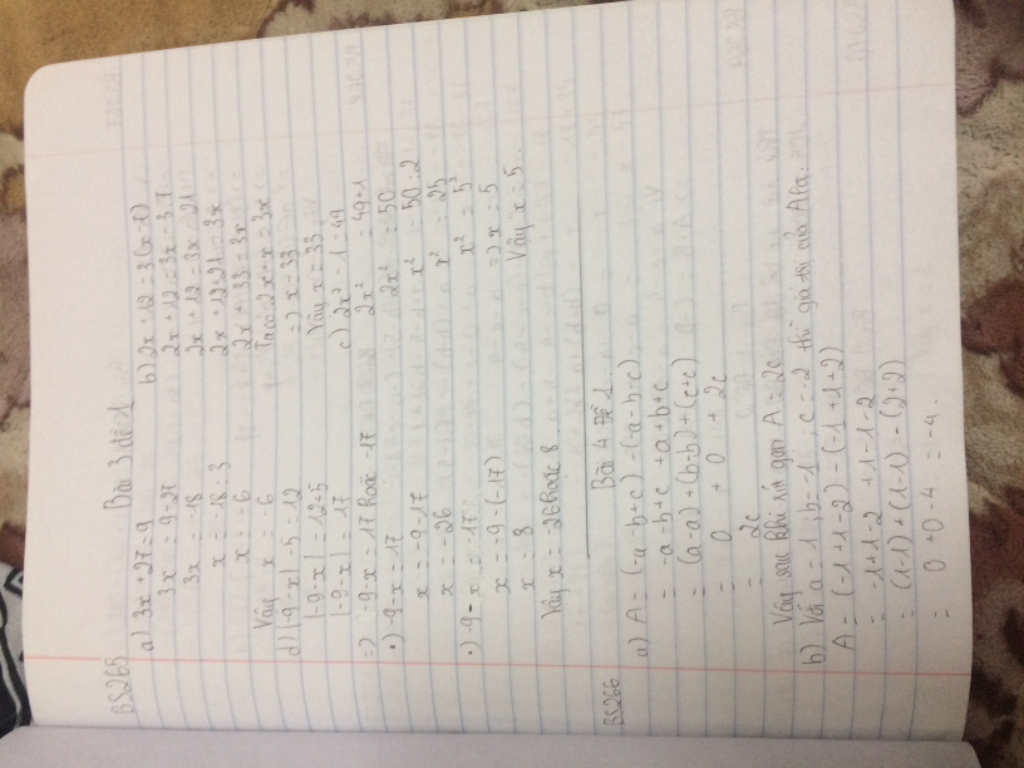 BS265
Bài 3 đề 1
a) 3x + 27 = 9
3x = 9 - 27
3x = -18
x = -18 : 3
x = -6
Vậy x = -6
d) |-9-x| - 5 = 12
|-9-x| = 12 + 5
|-9-x| = 17
=) -9-x = 17 hoặc -17
•) -9-x = 17
x = -9 - 17
x = -26
•) -9-x = -17
x = -9 - (-17)
x = 8
Vậy x = -26 hoặc 8
b) 2x + 12 = 3(x-7)
2x + 12 = 3x - 3.7
2x + 12 = 3x - 21
2x + 12 + 21 = 3x
2x + 33 = 3x
Ta có: 2x + x = 3x
=) x = 33
Vậy x = 33
c) 2x² - 1 = 49
2x² = 49 + 1
2x² = 50
x² = 50 : 2
x² = 25
x² = 5²
=) x = 5
Vậy x = 5.
BS266
Bài 4 Đề 1.
a) A = (-a-b+c) - (-a-b-c)
= -a-b+c + a+b+c
= (a-a) + (b-b) + (c+c)
= 0 + 0 + 2c
= 2c
Vậy sau khi rút gọn A = 2c
b) Với a = 1 ; b = -1 ; c = -2 thì giá trị của A là:
A = (-1+1-2) - (-1+1+2)
= -1+1-2 + 1-1-2
= (1-1) + (1-1) - (2+2)
= 0 + 0 - 4 = -4.